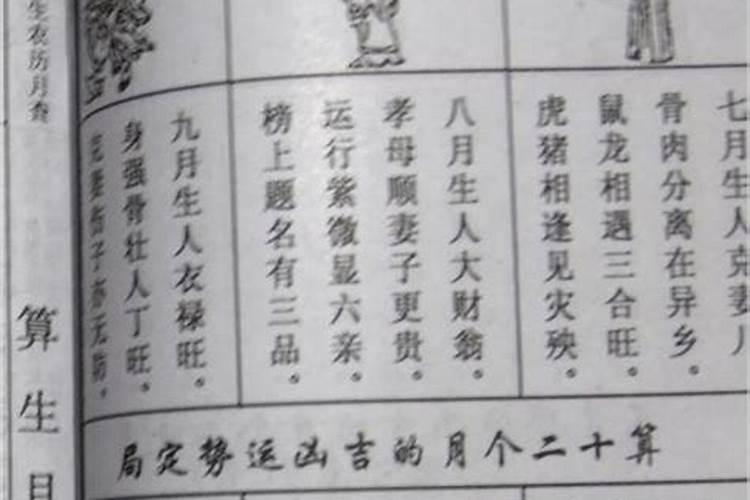 七月生人克妻儿
骨肉分离在异乡。
鼠龙相遇三合旺。
虎猪相逢见灾殃。
八月生人大财翁。
孝母顺妻子更贵。
运行紫微显六亲。
榜上题名有三品。
九月生人衣禄旺。
身强骨壮人丁旺。
克妻伤子亦无妨。
算十二个月的吉凶运势定局
生农历月查
算生